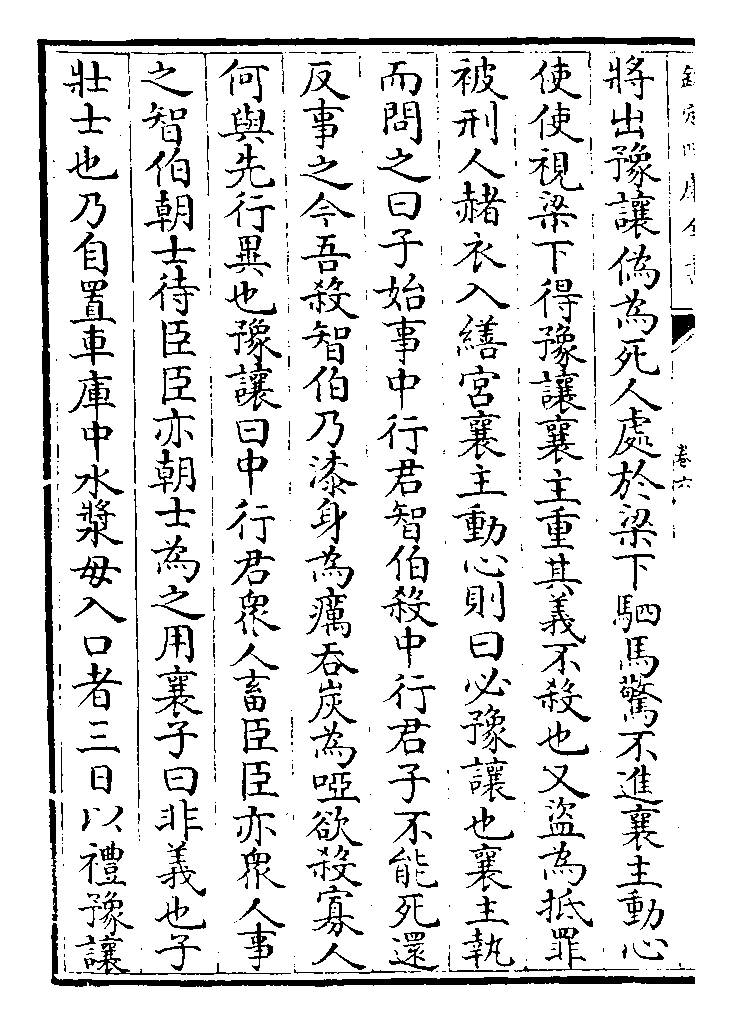 將出豫讓偽為死人處於梁下駟馬驚不進襄主動心
使使視梁下得豫讓襄主重其義不殺也又盜為抵罪
被刑人赭衣入繕宮襄主動心則曰必豫讓也襄主執
而問之曰子始事中行君智伯殺中行君子不能死還
反事之今吾殺智伯乃漆身為癘吞炭為啞欲殺寡人
何與先行異也豫讓曰中行君眾人畜臣臣亦眾人事
之智伯朝士待臣臣亦朝士為之用襄子曰非義也子
壯士也乃自置車庫中水漿毋入口者三日以禮豫讓
卷六